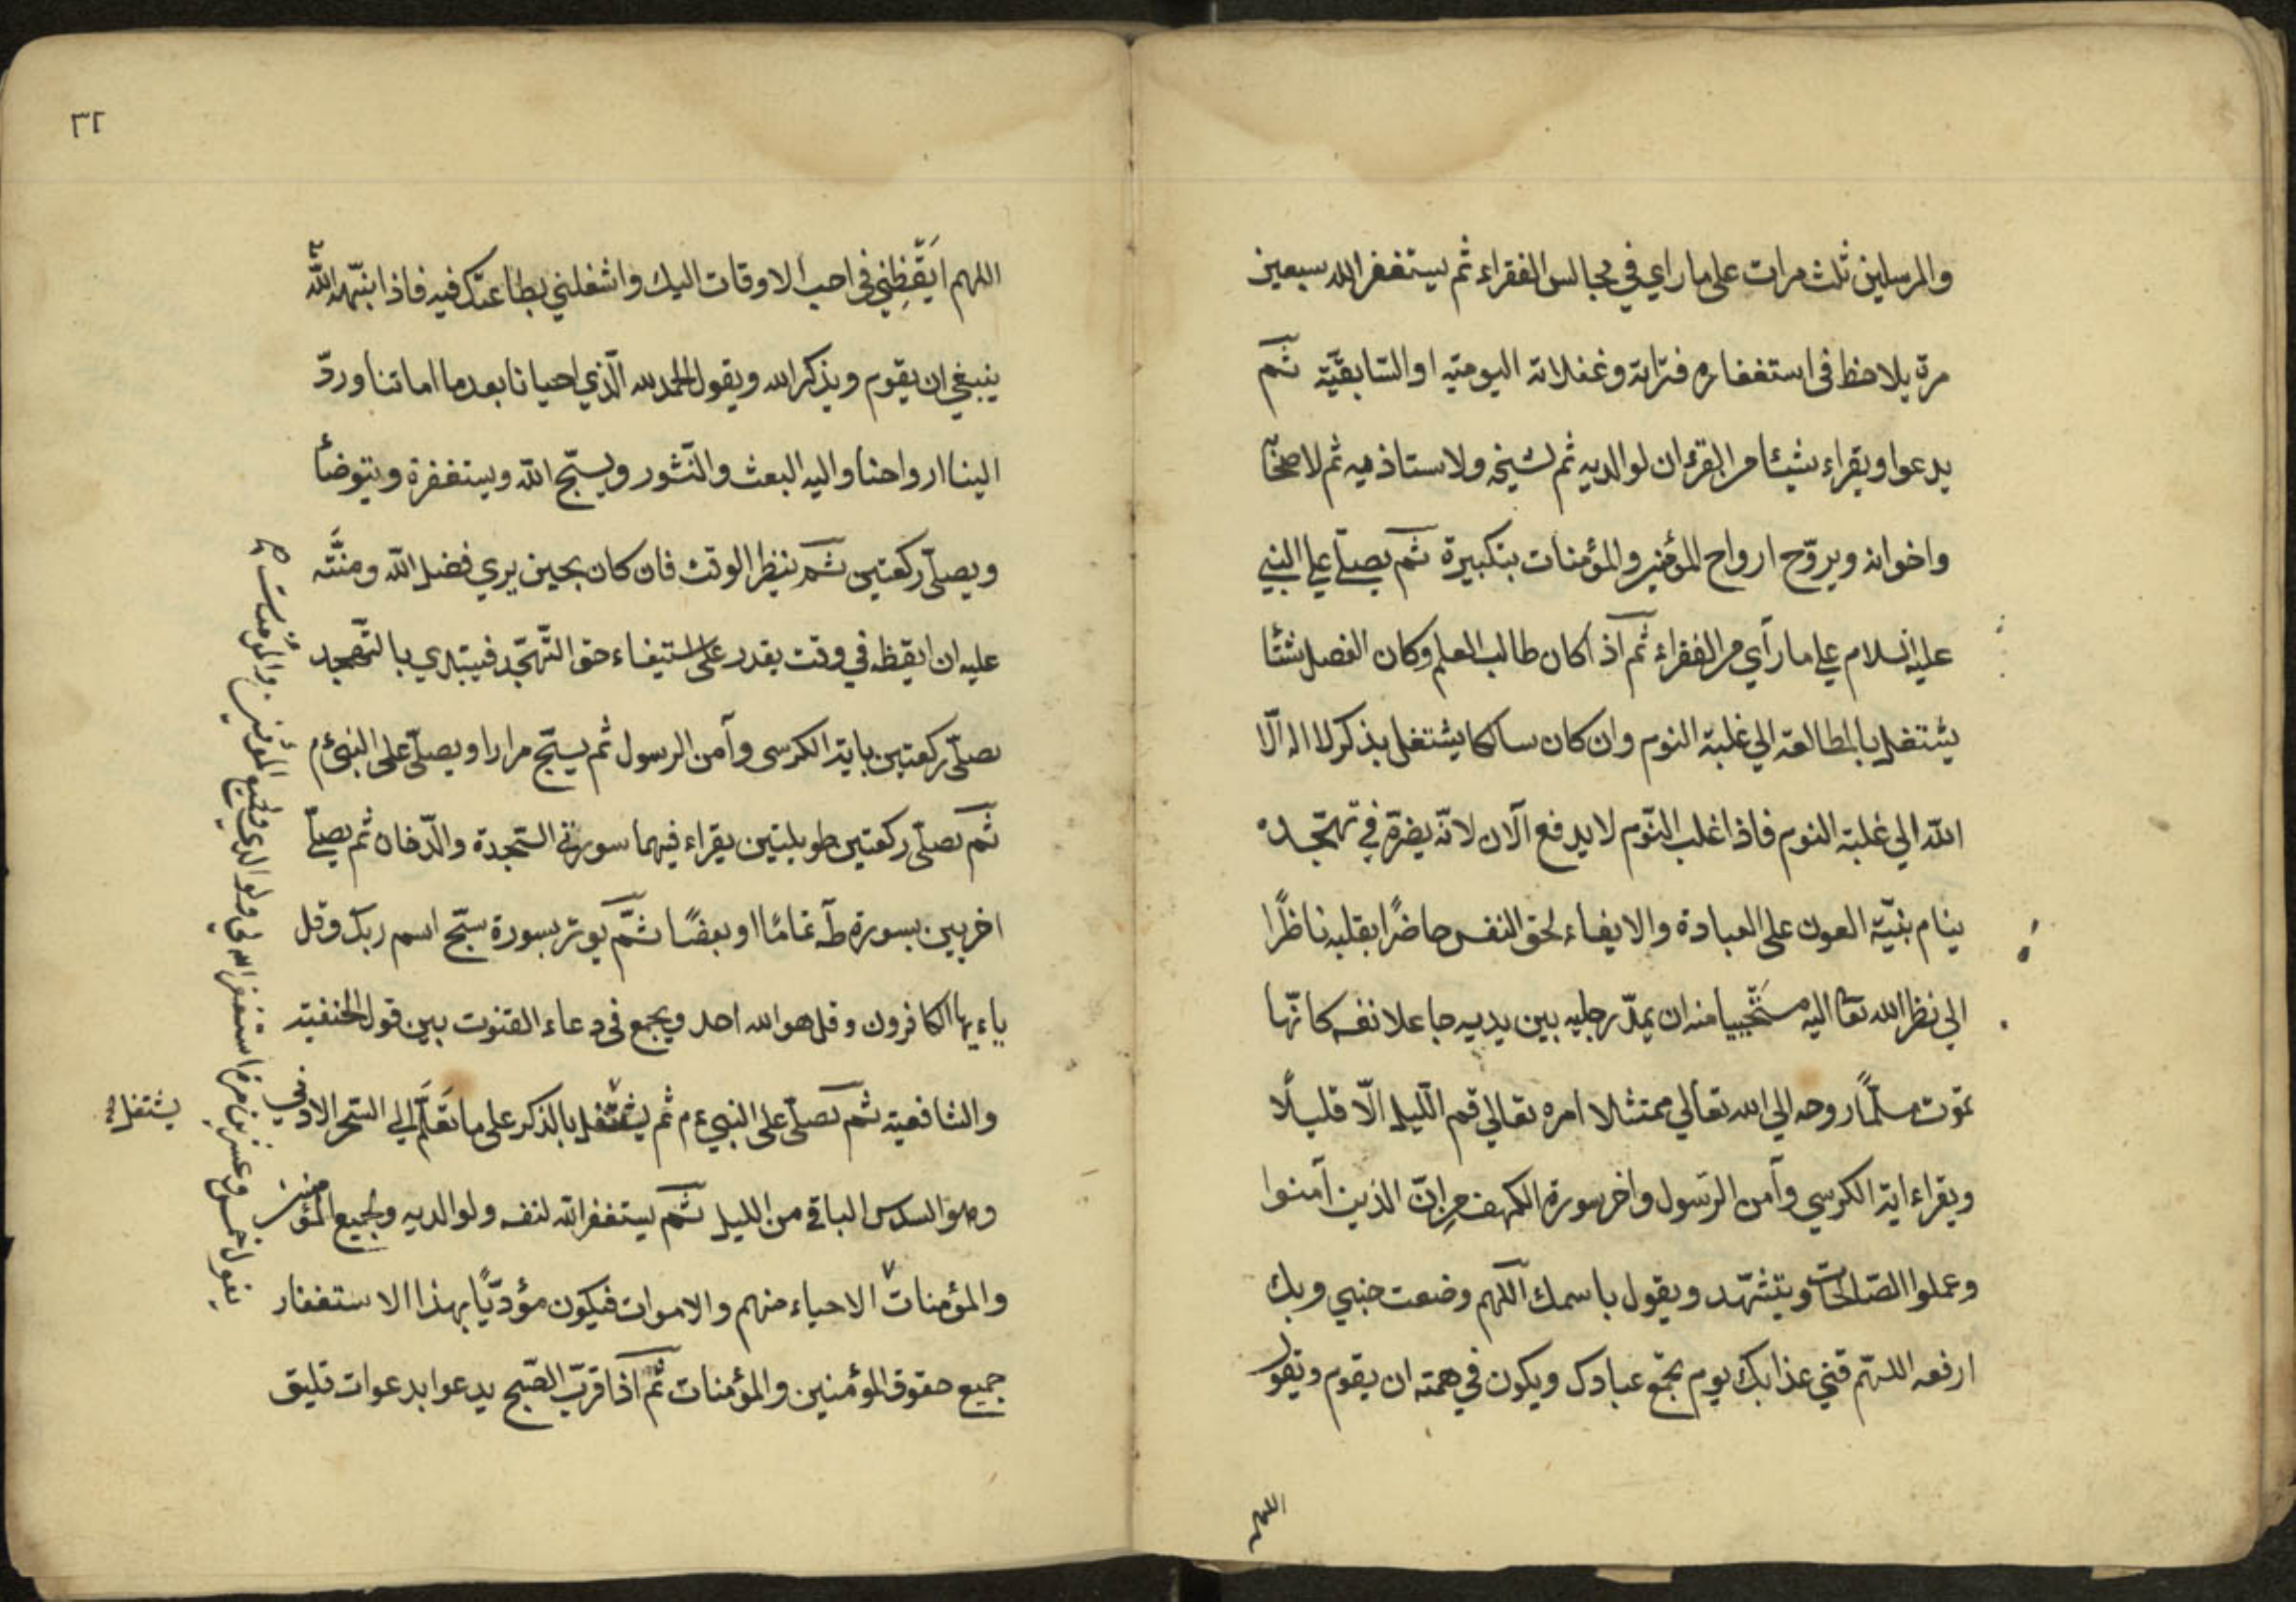 والمرسلين ثلث مرات على ما راي في مجالس الفقراء ثم يستغفر الله سبعين
مرة يلاحظ فى استغفاره فتراته وغفلاته اليوميّه او السّابقيّة ثم
يدعوا ويقراء شيئا من القرءان لوالديه ثم لشيخه ولاستاذيه ثم لاصحابه
واخوانه ويروّح ارواح المؤمنين والمؤمنات بتكبيرة ثم يصلّي علي النبي
عليه السلام علي ما رآي من الفقراء ثم اذ اكان طالب العلم وكان الفصل شتّا
يشتغل بالمطالعة الي غلبة النوم وان كان سالكا يشتغل بذكر لا اله الّا
الله الي غلبة النوم فاذا غلب النّوم لا يدفع الآن لانّه يضرّه في تهجّده
ينام بنيّة العون على العبادة والايفاء لحق النفس حاضرًا بقلبه ناظرًا
الي نظر الله تعا اليه مستحييا منه ان يمدّ رجليه بين يديه جاعلا نفسه كانّها
تموت مسلّمًا روحه الي الله تعالي ممتثلا امره تعالي قم اللّيل الّا قليلًا
ويقراء اية الكرسي وآمن الرّسول واخر سورة الكهف من انّ الذين آمنوا
وعملوا الصّالحات ويتشهّد ويقول باسمك اللّهم وضعت جنبي وبك
ارفعه اللهّم قني عذابك يوم تجمّع عبادك ويكون في همته ان يقوم ويقول
اللهم
٣٢
اللهم ايَقِظني في احب الاوقات اليك واشغلني بطاعتك فيه فاذا نبّهه الله
ينبغي ان يقوم ويذكر الله ويقول الحمد لله الّذي احيانا بعد ما اماتنا وردّ
الينا ارواحنا واليه البعث والنّشور ويسبّح الله ويستغفرة ويتوضأ
ويصلّي ركعتين ثم ينظر الوقت فان كان بحين يري فضل الله ومنّته
عليه ان ايقظه في وقت يقدر على استيفاء حق التّهجّد فيبتدي بالتّهجد
يصلّى ركعتين باية الكرسى وآمن الرسول ثم يسبّح مرارا ويصلّي على النبي ءم
ثم يصلّى ركعتين طويلتين يقراء فيهما سورة السّجدة والدّخان ثم يصلّي
اخريين بسورة طه تمامًا او بعضًا ثمّ يوتر بسورة سبّح اسم ربك وقل
ياءيها الكافرون وقل هو الله احد ويجمع فى دعاء القنوت بين قول الحنفية
والشافعية ثم يصلّى على النبي ءم ثم يشتغل بالذكر على ما تعَلّم الي السّحر الادني
وهو السدس الباقي من الليل ثم يستغفر الله لنفسه ولوالديه ولجميع المؤمنين
والمؤمنات الاحياء منهم والاموات فيكون مؤدّيًا بهذا الاستغفار
جميع حقوق المؤمنين والمؤمنات ثم اذا قربّ الصّبح يدعوا بدعوات تليق
يشتغل
يقول خمس وعشرين مرة استغفر الله لي ولوالدي ولجميع المؤمنين والمؤمنات